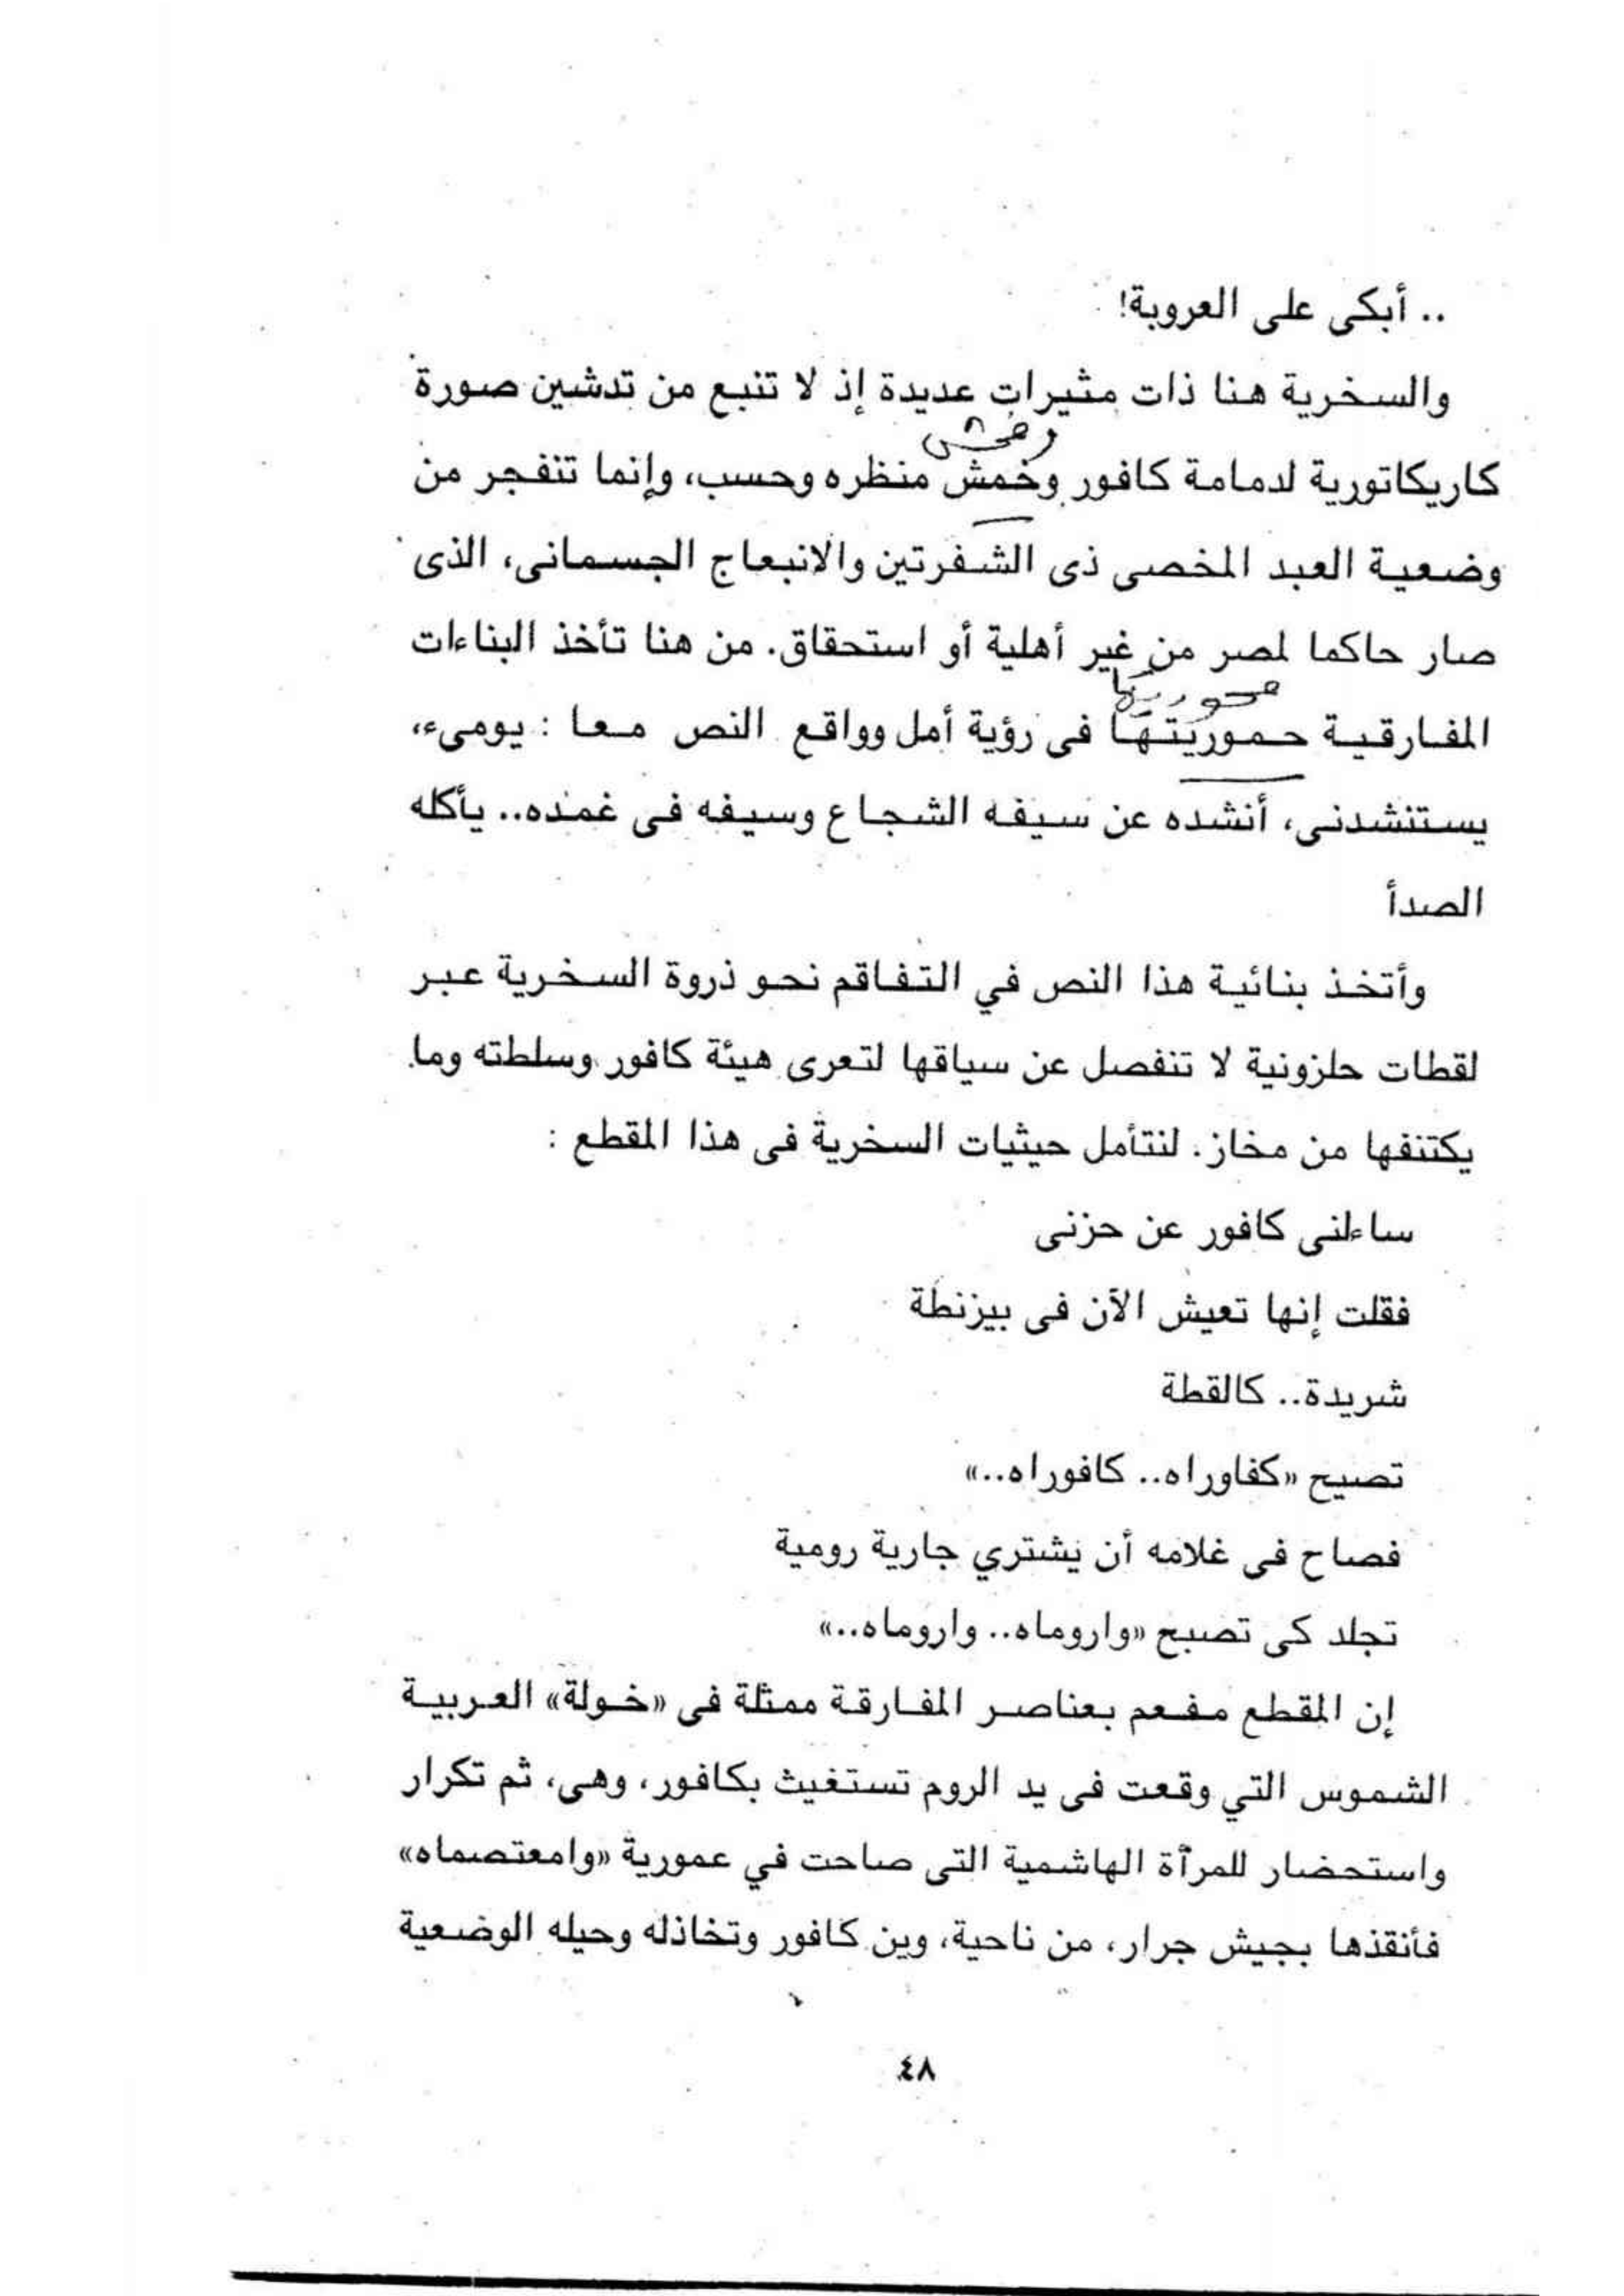 .. أبكى على العروبة!
والسخرية هنا ذات مثيرات عديدة إذ لا تنبع من تدشين صورة
وفحش
كاريكاتورية لدمامة كافور وخمش منظره وحسب، وإنما تنفجر من
وضعية العبد المخصى ذى الشفرتين والانبعاج الجسمانى، الذى
صار حاكما لمصر من غير أهلية أو استحقاق. من هنا تأخذ البناءات
محوريتها
المفارقية حموريتها فى رؤية أمل وواقع النص معا : يومىء،
يستنشدنى، أنشده عن سيفه الشجاع وسيفه فى غمده.. يأكله
الصدأ
وأتخذ بنائية هذا النص في التفاقم نحو ذروة السخرية عبر
لقطات حلزونية لا تنفصل عن سياقها لتعرى هيئة كافور وسلطته وما
يكتنفها من مخاز. لنتأمل حيثيات السخرية فى هذا المقطع :
ساءلنى كافور عن حزنى
فقلت إنها تعيش الآن فى بيزنطة
شريدة.. كالقطة
تصيح «كفاوراه.. كافوراه..»
فصاح فى غلامه أن يشتري جارية رومية
تجلد كى تصبح «واروماه.. واروماه..»
إن المقطع مفعم بعناصر المفارقة ممثلة فى «خولة» العربية
الشموس التي وقعت فى يد الروم تستغيث بكافور، وهى، ثم تكرار
واستحضار للمرأة الهاشمية التى صاحت في عمورية «وامعتصماه»
فأنقذها بجيش جرار، من ناحية، وين كافور وتخاذله وحيله الوضعية
٤٨